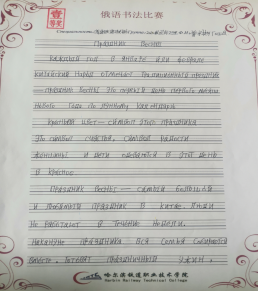 俄语书法比赛
Праздник Весны
Каждый год в январе или феврале
китайский народ отмечает традиционный
праздник Весны. Это первый день первого месяца
Нового года по лунному календарю
Красный цвет – символ этого праздника
Это символ счастья, символ радости
Женщины и дети одеваются в этот день
в красное
Праздник Весны – самый большой
и любимый праздник в Китае. Люди
не работают в течение недели.
Накануне праздника вся семья собирается
вместе, готовят праздничный ужин,
哈尔滨铁道职业技术学院
Harbin Railway Technical College